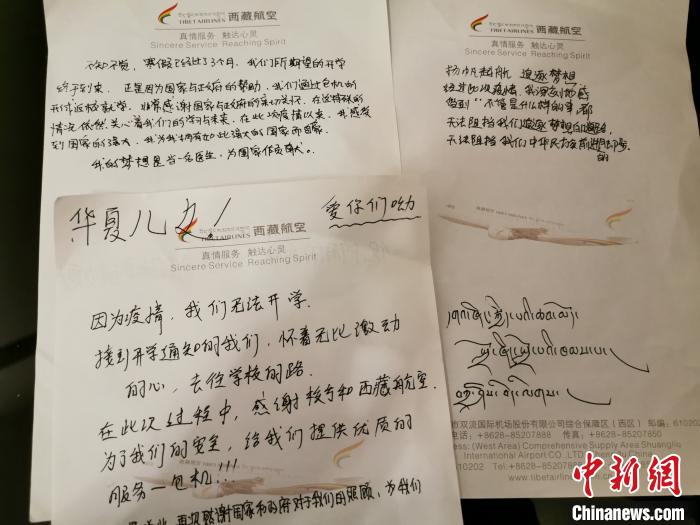 TIBET AIRLINES 西藏航空
真情服务 触达心灵
Sincere Service Reaching Spirit
不知不觉，寒假已经过了3个月，我们所期望的开学
终于到来，正是因为国家与政府的帮助，我们通过包机的
开付返校就学，非常感谢国家与政府的亲切关怀，在这特殊的
情况依然关心着我们的学习与未来，在此次疫情以来，我感受
到国家的强大，我为我拥有如此强大的国家而自豪。
我的梦想是当一名医生，为国家作贡献。
TIBET AIRLINES 西藏航空
真情服务 触达心灵
Sincere Service Reaching Spirit
扬帆起航 追逐梦想
经过此次疫情，我深刻地感
受到"不管是什么样的事，都
无法阻挡我们追逐梦想的
无法阻挡我们中华民族前进
的
西藏航空
华夏儿女！
爱你们呦
TIBET AIRLINES 西藏航空
真情服务 触达心灵
Sincere Service Reaching Spirit
因为疫情，我们无法开学.
接到开学通知的我们，怀着无比激动
的心，去往学校的路.
在此次过程中，感谢校方和西藏航空.
为了我们的安全，给我们提供优质的
服务一包机!!!
再次感谢国家和政府对于我们的照顾，为我们
市双流国际机场股份有限公司综合保障区（西区） 邮编：610202
电话：+8628-85207888 传真：+8628-85207850
ress: (West Area) Comprehensive Supply Area Shuangliu
International Airport CO.,LTD
610202 Tel:+8628-8520788
www.tibetairlines.
中新网
Chinanews.com